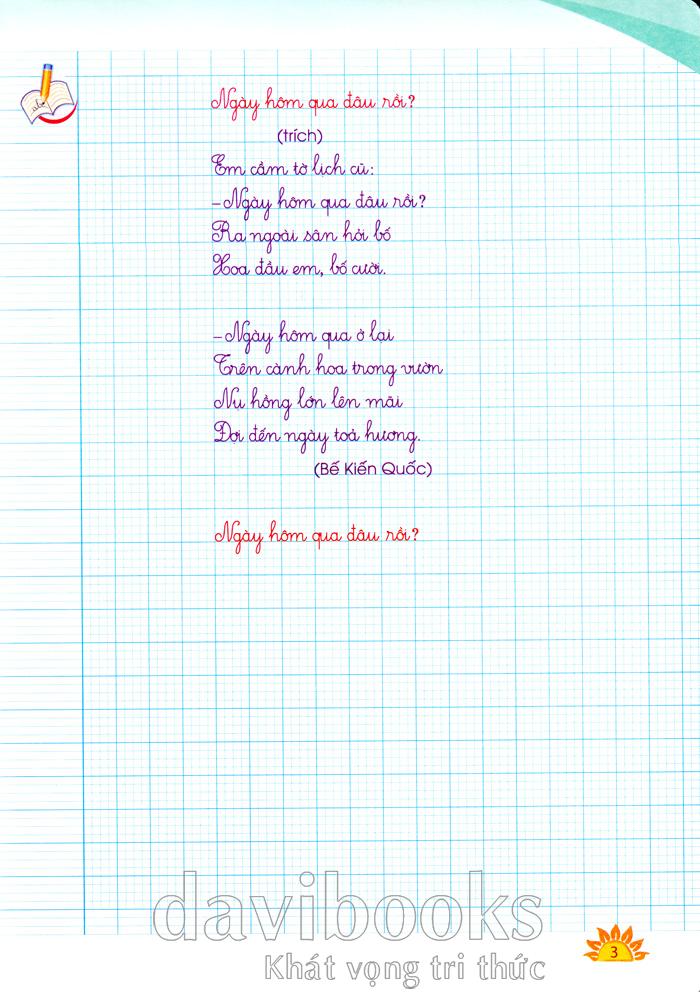 Ngày hôm qua đâu rồi?
(trích)
Em cầm tờ lịch cũ:
- Ngày hôm qua đâu rồi?
Ra ngoài sân hỏi bố
Xoa đầu em, bố cười.
- Ngày hôm qua ở lại
Trên cành hoa trong vườn
Nụ hồng lớn lên mãi
Đợi đến ngày toả hương.
(Bế Kiến Quốc)
Ngày hôm qua đâu rồi?
davibooks
Khát vọng tri thức
3